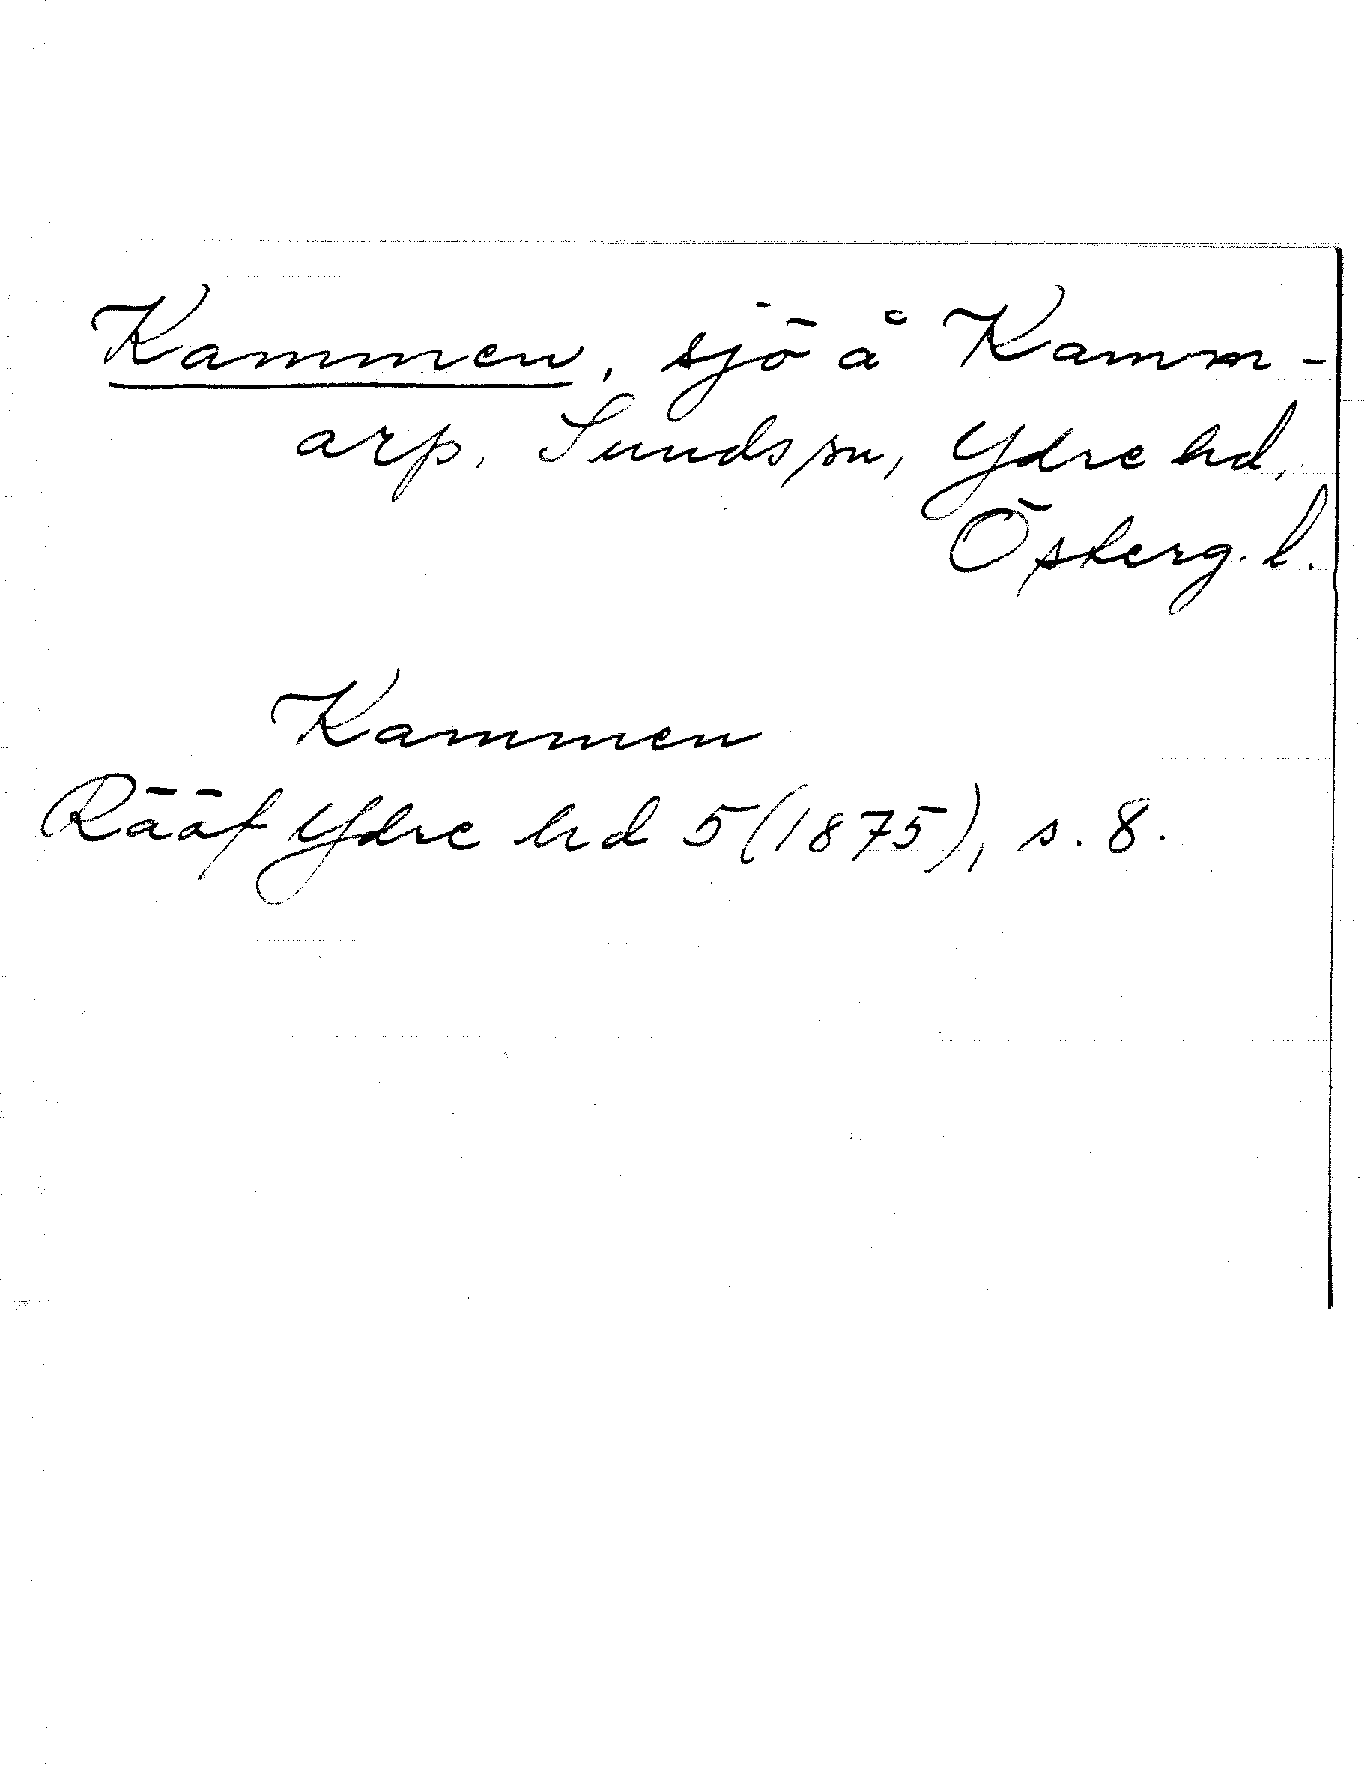 Kammen, sjö å Kamm-
arp, Sunds sn, Ydre hd,
Österg. l.
Kammen
Rääf Ydre hd 5 (1875), s. 8.